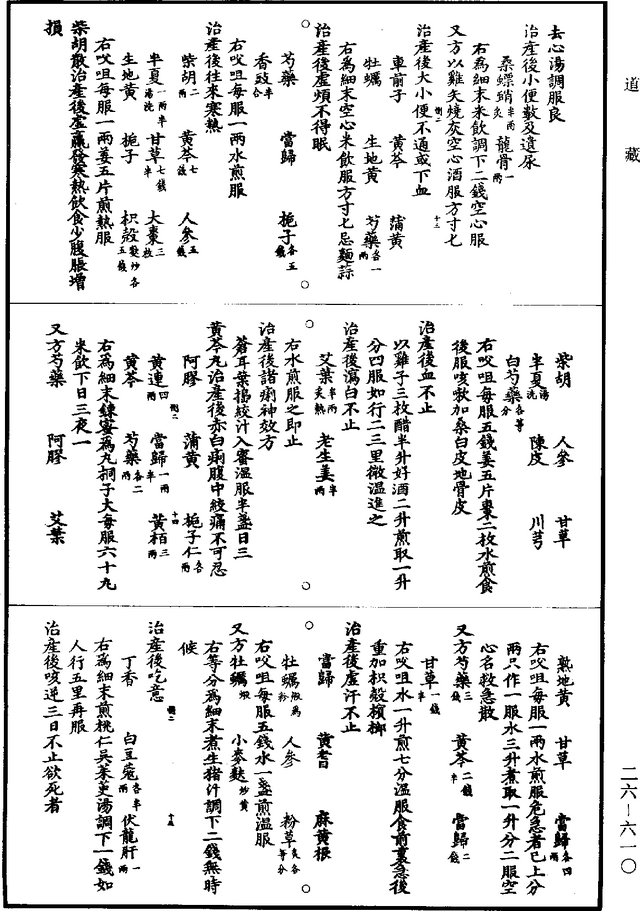 道藏
去心湯調服良
治產後小便數及遺尿
桑螵蛸炙半兩 龍骨一兩
右為細末米飲調下二錢空心服
又方以雞矢燒灰空心酒服方寸七
治產後大小便不通或下血
車前子 黃芩 蒲黃
牡蠣 生地黃 芍藥各一兩
右為細末空心米飲服方寸七忌麵蒜
治產後虛煩不得眠
芍藥 當歸 梔子各五錢
香豉半合
右㕮咀每服一兩水煎服
治產後往來寒熱
柴胡二兩 黃芩七錢 人參五錢
半夏一兩半湯洗 甘草七錢半 大棗三枚
生地黃 梔子 枳殼麩炒各五錢
右㕮咀每服一兩姜五片煎熱服
柴胡散治產後虛羸發寒熱飲食少腹脹增
損
柴胡 人參 甘草
半夏湯洗 陳皮 川芎
白芍藥各等分
右㕮咀每服五錢姜五片棗二枚水煎食
後服咳嗽加桑白皮地骨皮
治產後血不止
以雞子三枚醋半升好酒二升煎取一升
分四服如行二三里微溫進之
治產後瀉白不止
艾葉半兩炙熟 老生姜半兩
右水煎服之即止
治產後諸痢神效方
蒼耳葉搗絞汁入蜜溫服半盞日三
黃芩丸治產後赤白痢腹中絞痛不可忍
阿膠 蒲黃 梔子仁各一兩
黃連四兩 當歸一兩半 黃栢三兩
黃芩 芍藥各二兩
右為細末鍊蜜為丸桐子大每服六十丸
米飲下日三夜一
又方芍藥 阿膠 艾葉
熟地黃 甘草 當歸各四兩
右㕮咀每服一兩水煎服危急者已上分
兩只作一服水三升煮取一升分二服空
心名救急散
又方芍藥三錢 黃芩二錢半 當歸二錢
甘草一錢半
右㕮咀水一升煎七分溫服食前裏急後
重加枳殼檳榔
治產後虛汗不止
當歸 黃耆 麻黃根
牡蠣煅為粉 人參 粉草炙各等分
右㕮咀每服五錢水一盞煎溫服
又方牡蠣煅 小麥麩炒黃
右等分為細末煮生猪汁調下二錢無時
候
治產後吃意
丁香 白豆蔻各半兩 伏龍肝一兩
右為細末煎桃仁吳茱萸湯調下一錢如
人行五里再服
治產後咳逆三日不止欲死者
二六—六一〇